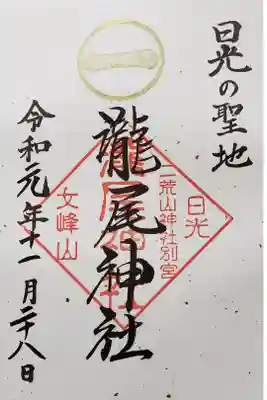 日光の聖地
日光
二荒山神社別宮
瀧尾神社
女峰山
令和元年十一月二十八日